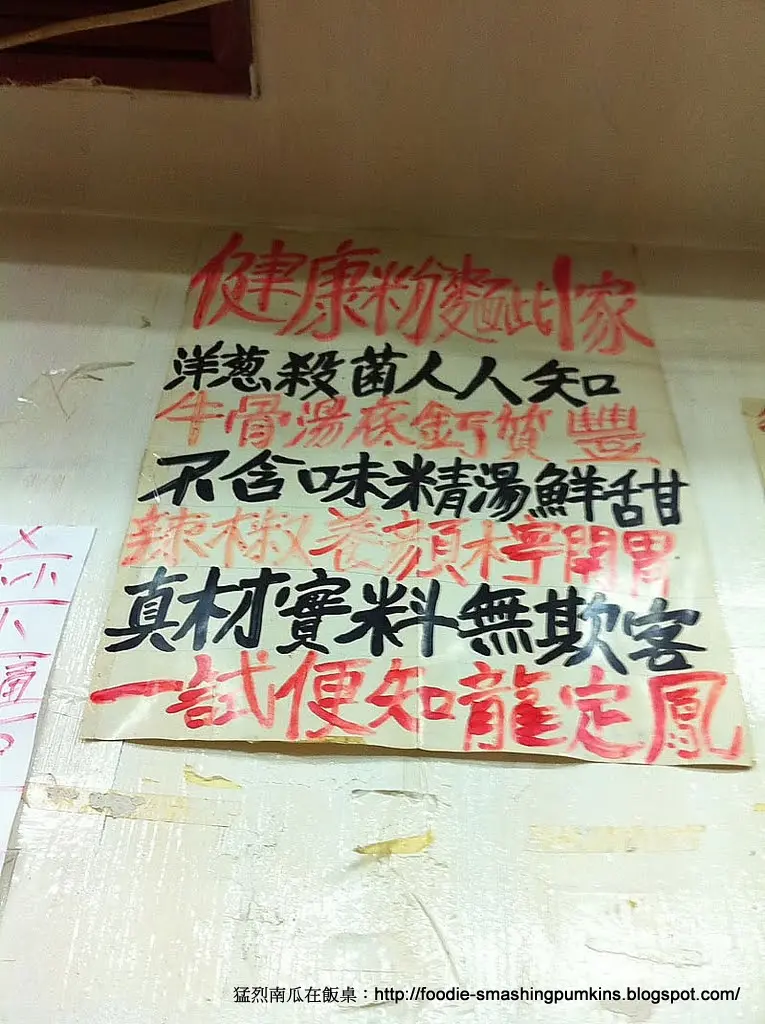 健康粉麵此家
洋葱殺菌人人知
牛骨湯底鈣質豐
不含味精湯鮮甜
辣椒養顏檸開胃
真材實料無欺客
一試便知龍定鳳
通
猛烈南瓜在飯桌：http://foodie-smashingpumkins.blogspot.com/